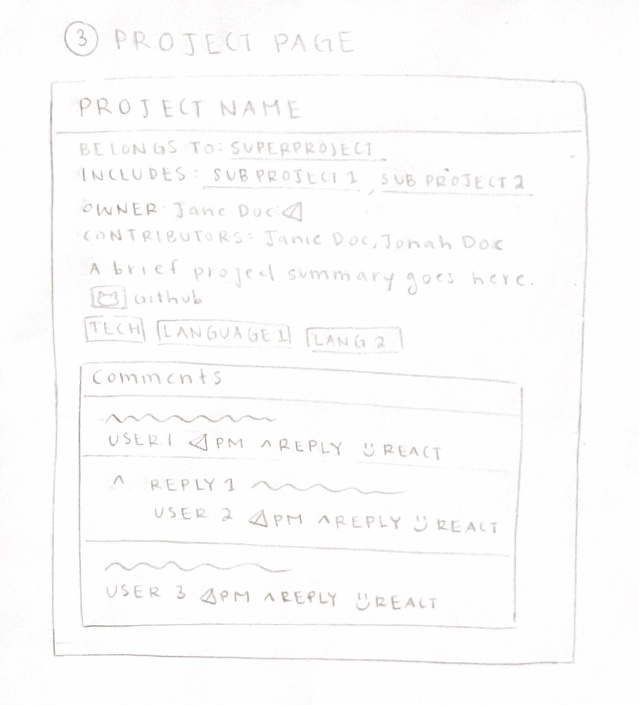 3 PROJECT PAGE
PROJECT NAME
BELONGS TO: SUPERPROJECT
INCLUDES: SUBPROJECT 1, SUBPROJECT 2
OWNER: Jane Doe
CONTRIBUTORS: Jane Doe, Jonah Doe
A brief project summary goes here.
Github
TECH LANGUAGE 1 LANG 2
Comments
USER 1 PM ^ REPLY REACT
^ REPLY 1
USER 2 PM ^ REPLY REACT
USER 3 PM ^ REPLY REACT